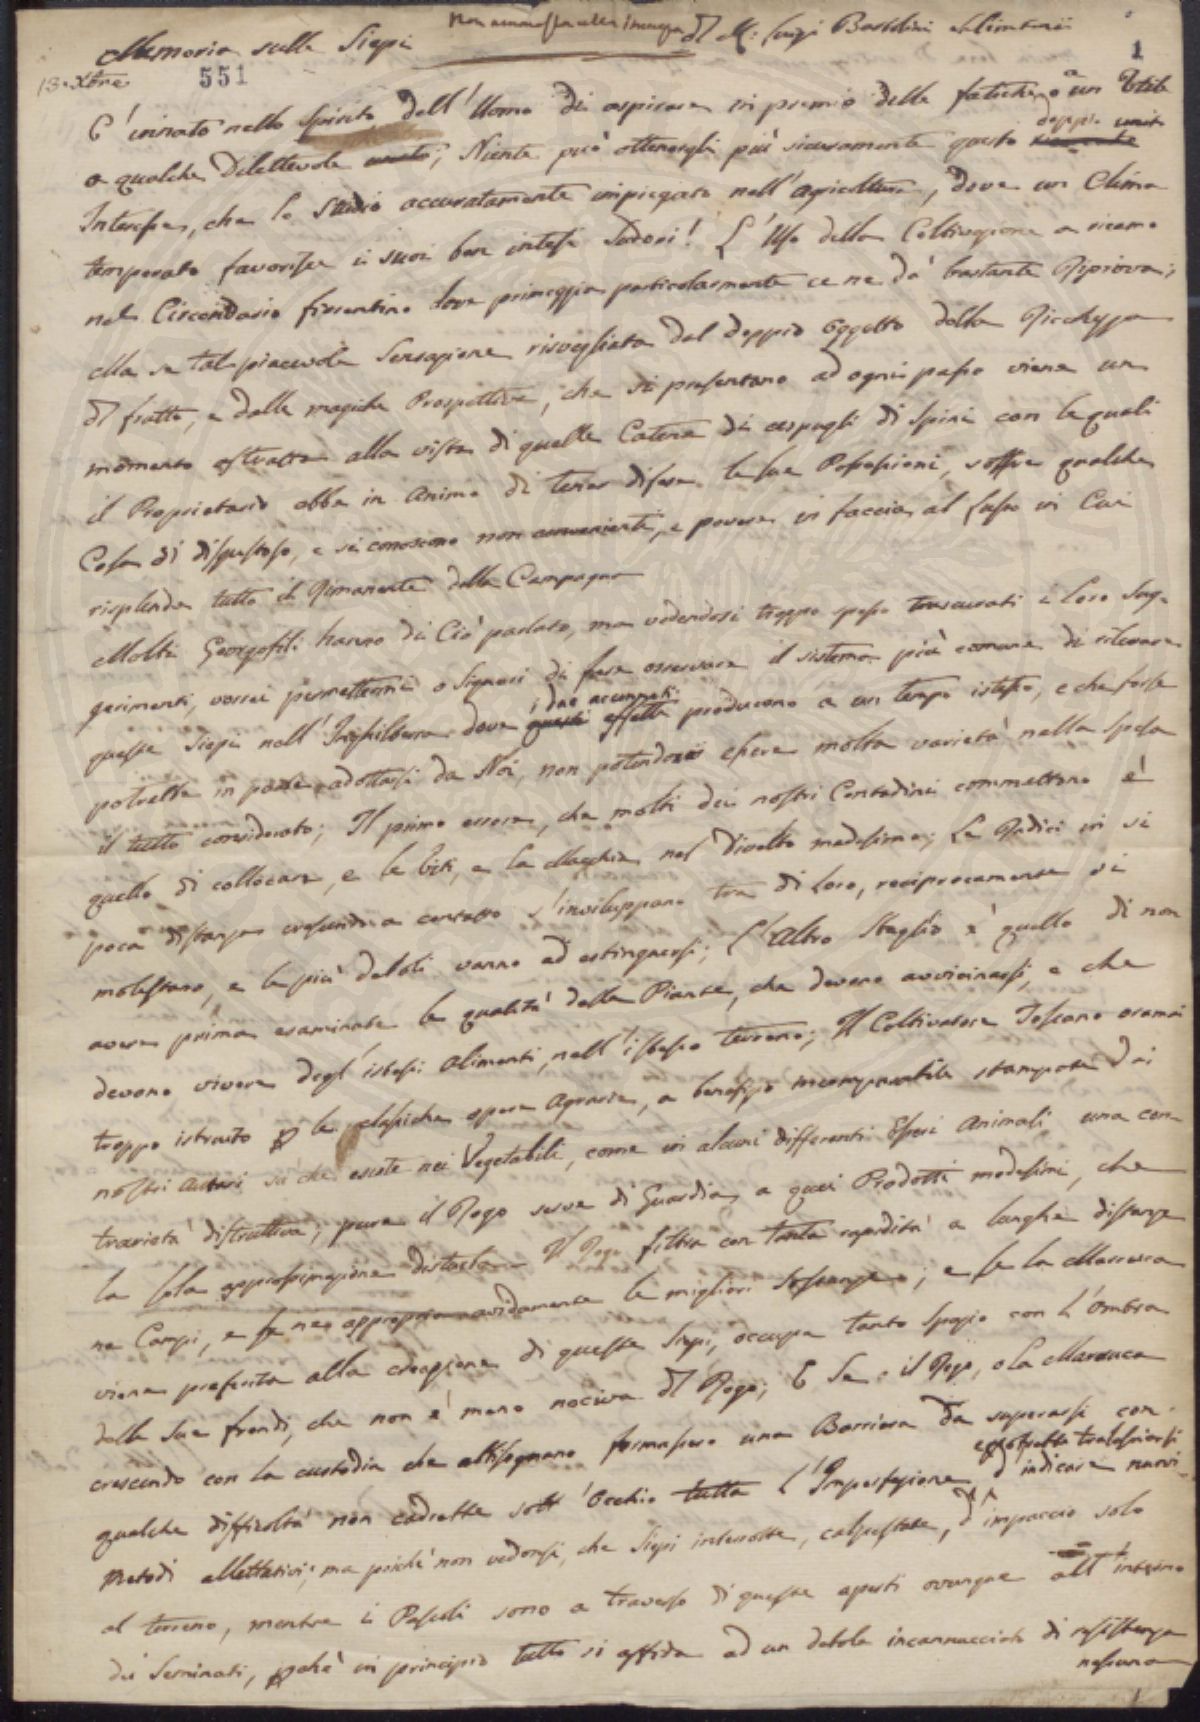 Non ammessa alla stampa Di M: Luigi Bartolini
1
Memoria sulle Siepi
13. Xbre 551
E' innato nello Spirito dell'Uomo di aspirare in premio delle fatiche o a un Utile
o a qualche Dilettevole; Niente può ottenergli più sicuramente questo doppio
Interesse, che lo Studio accuratamente impiegato nell'agricoltura, dove un Clima
temperato favorisce i suoi ben intesi Sudori! L'Uso della Coltivazione a ricamo
nel Circondario fiorentino dove primeggia particolarmente ce ne dà bastante Riprova;
Ma se tal piacevole Sensazione risvegliata dal doppio oggetto della Ricchezza
di frutto, e dalle magiche Prospettive, che si presentano ad ogni passo viene un
momento astratta alla vista di quelle Catene di cespugli di Spini con le quali
il Proprietario ebbe in animo di tener difese le sue Possessioni, soffre qualche
Cosa di disgustoso, e si conoscono non convenienti, e povere in faccia al lusso in Cui
risplende tutto il Rimanente della Campagna
Molti Georgofili hanno di Ciò parlato, ma vedendosi troppo spesso trascurati i loro Sug-
gerimenti, vorrei permettermi o Signori di fare osservare il sistema più comune di rilevare
queste Siepi nell'Inghilterra dove i due accennati questi effetti producono a un tempo istesso, e che forse
potrebbe in parte adottarsi da Noi, non potendovi essere molta varietà nella Spesa
il tutto considerato; Il primo errore, che molti dei nostri Contadini commettono è
quello di collocare, e le Viti, e la Macchia nel Divelto medesimo; Le Radici in sì
poca distanza crescendo a contatto s'inviluppano tra di loro, reciprocamente si
molestano, e le più deboli vanno ad estinguersi; L'Altro Sbaglio è quello di non
avere prima esaminate le qualità delle Piante, che devono avvicinarsi, e che
devono vivere degl'istessi alimenti, nell'istesso terreno; Il Coltivatore Toscano oramai
troppo istruito per le classiche opere Agrarie, a benefizio incomparabile stampate dai
nostri autori sà che esiste nei Vegetabili, come in alcuni differenti Esseri animali una con-
trarietà distruttiva; pure il Rogo serve di Guardia a quei Prodotti medesimi, che
la sola approssimazione Il Rogo filtra con tanta rapidità a lunghe distanze
ne Campi, e se ne appropria avidamente le migliori Sostanze; e se la Marruca
viene preferita alla creazione di queste Siepi, occupa tanto Spazio con L'ombra
delle sue frondi, che non è meno nociva del Rogo; E Se, o il Rogo, o la Marruca
crescendo con la custodia che abbisognano formassero una Barriera da superarsi con
qualche difficoltà non cadrebbe sott'Occhio tutta L'Imperfezione, e potrebbe tralasciarsi d'indicare nuovi
Metodi allettativi; ma poiché non vedonsi, che Siepi interrotte, calpestate, d'impaccio solo
al terreno, mentre i Pascoli sono a traverso di queste aperti ovunque all'interno
dei Seminati, perché in principio tutto si affida ad un debole incannucciato di resistenza
nessuna